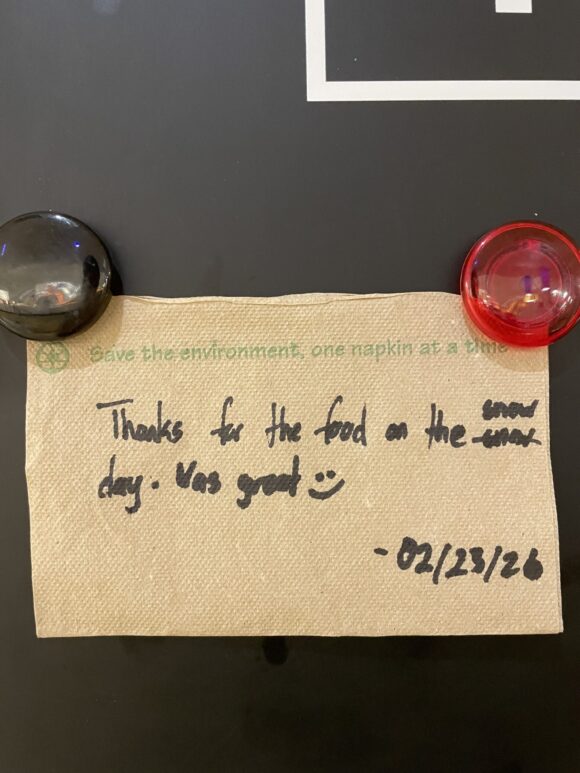 Save the environment, one napkin at a time
Thanks for the food on the snow
snow
day. Was great :)
- 02/23/26